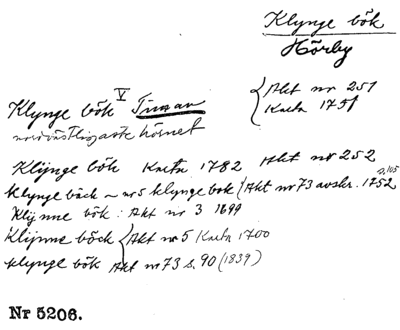 Klynge bök
Hörby
Klynge bök V Tunnan { Akt nr 251
Karta 1751
nordvästligaste hörnet
Klijnge bök Karta 1782 Akt nr 252
klynge bäck ~ nr 5 klynge bok (Akt nr 73 avskr. 1752 s. 105
Klijnne bök : Akt nr 3 1699
Klijnne böck { Akt nr 5 Karta 1700
klynge bök Akt nr 73 s. 90 (1839)
Nr 5206.